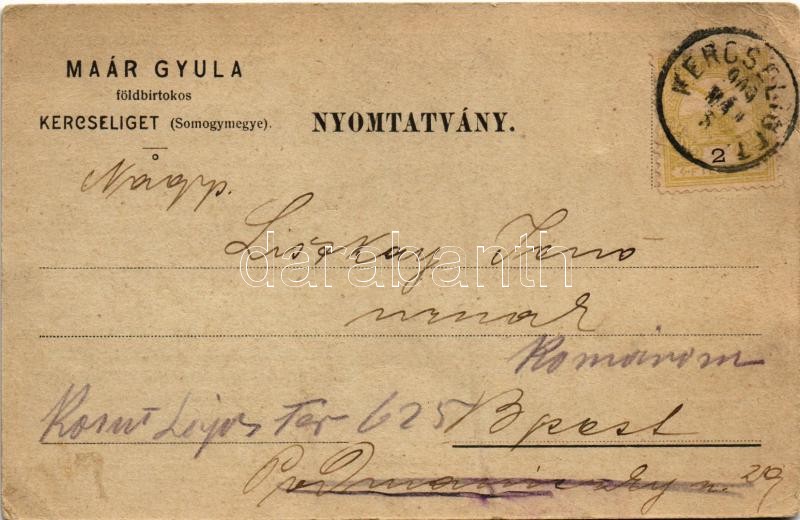 MAÁR GYULA
földbirtokos
KERCSELIGET (Somogymegye).
NYOMTATVÁNY.
KERCSELIGET
903
MÁJ
5
2
Nagys.
Liszkay Jenő
urnak
Komárom
Lajos Tér 625
Bpest
29
darabanth